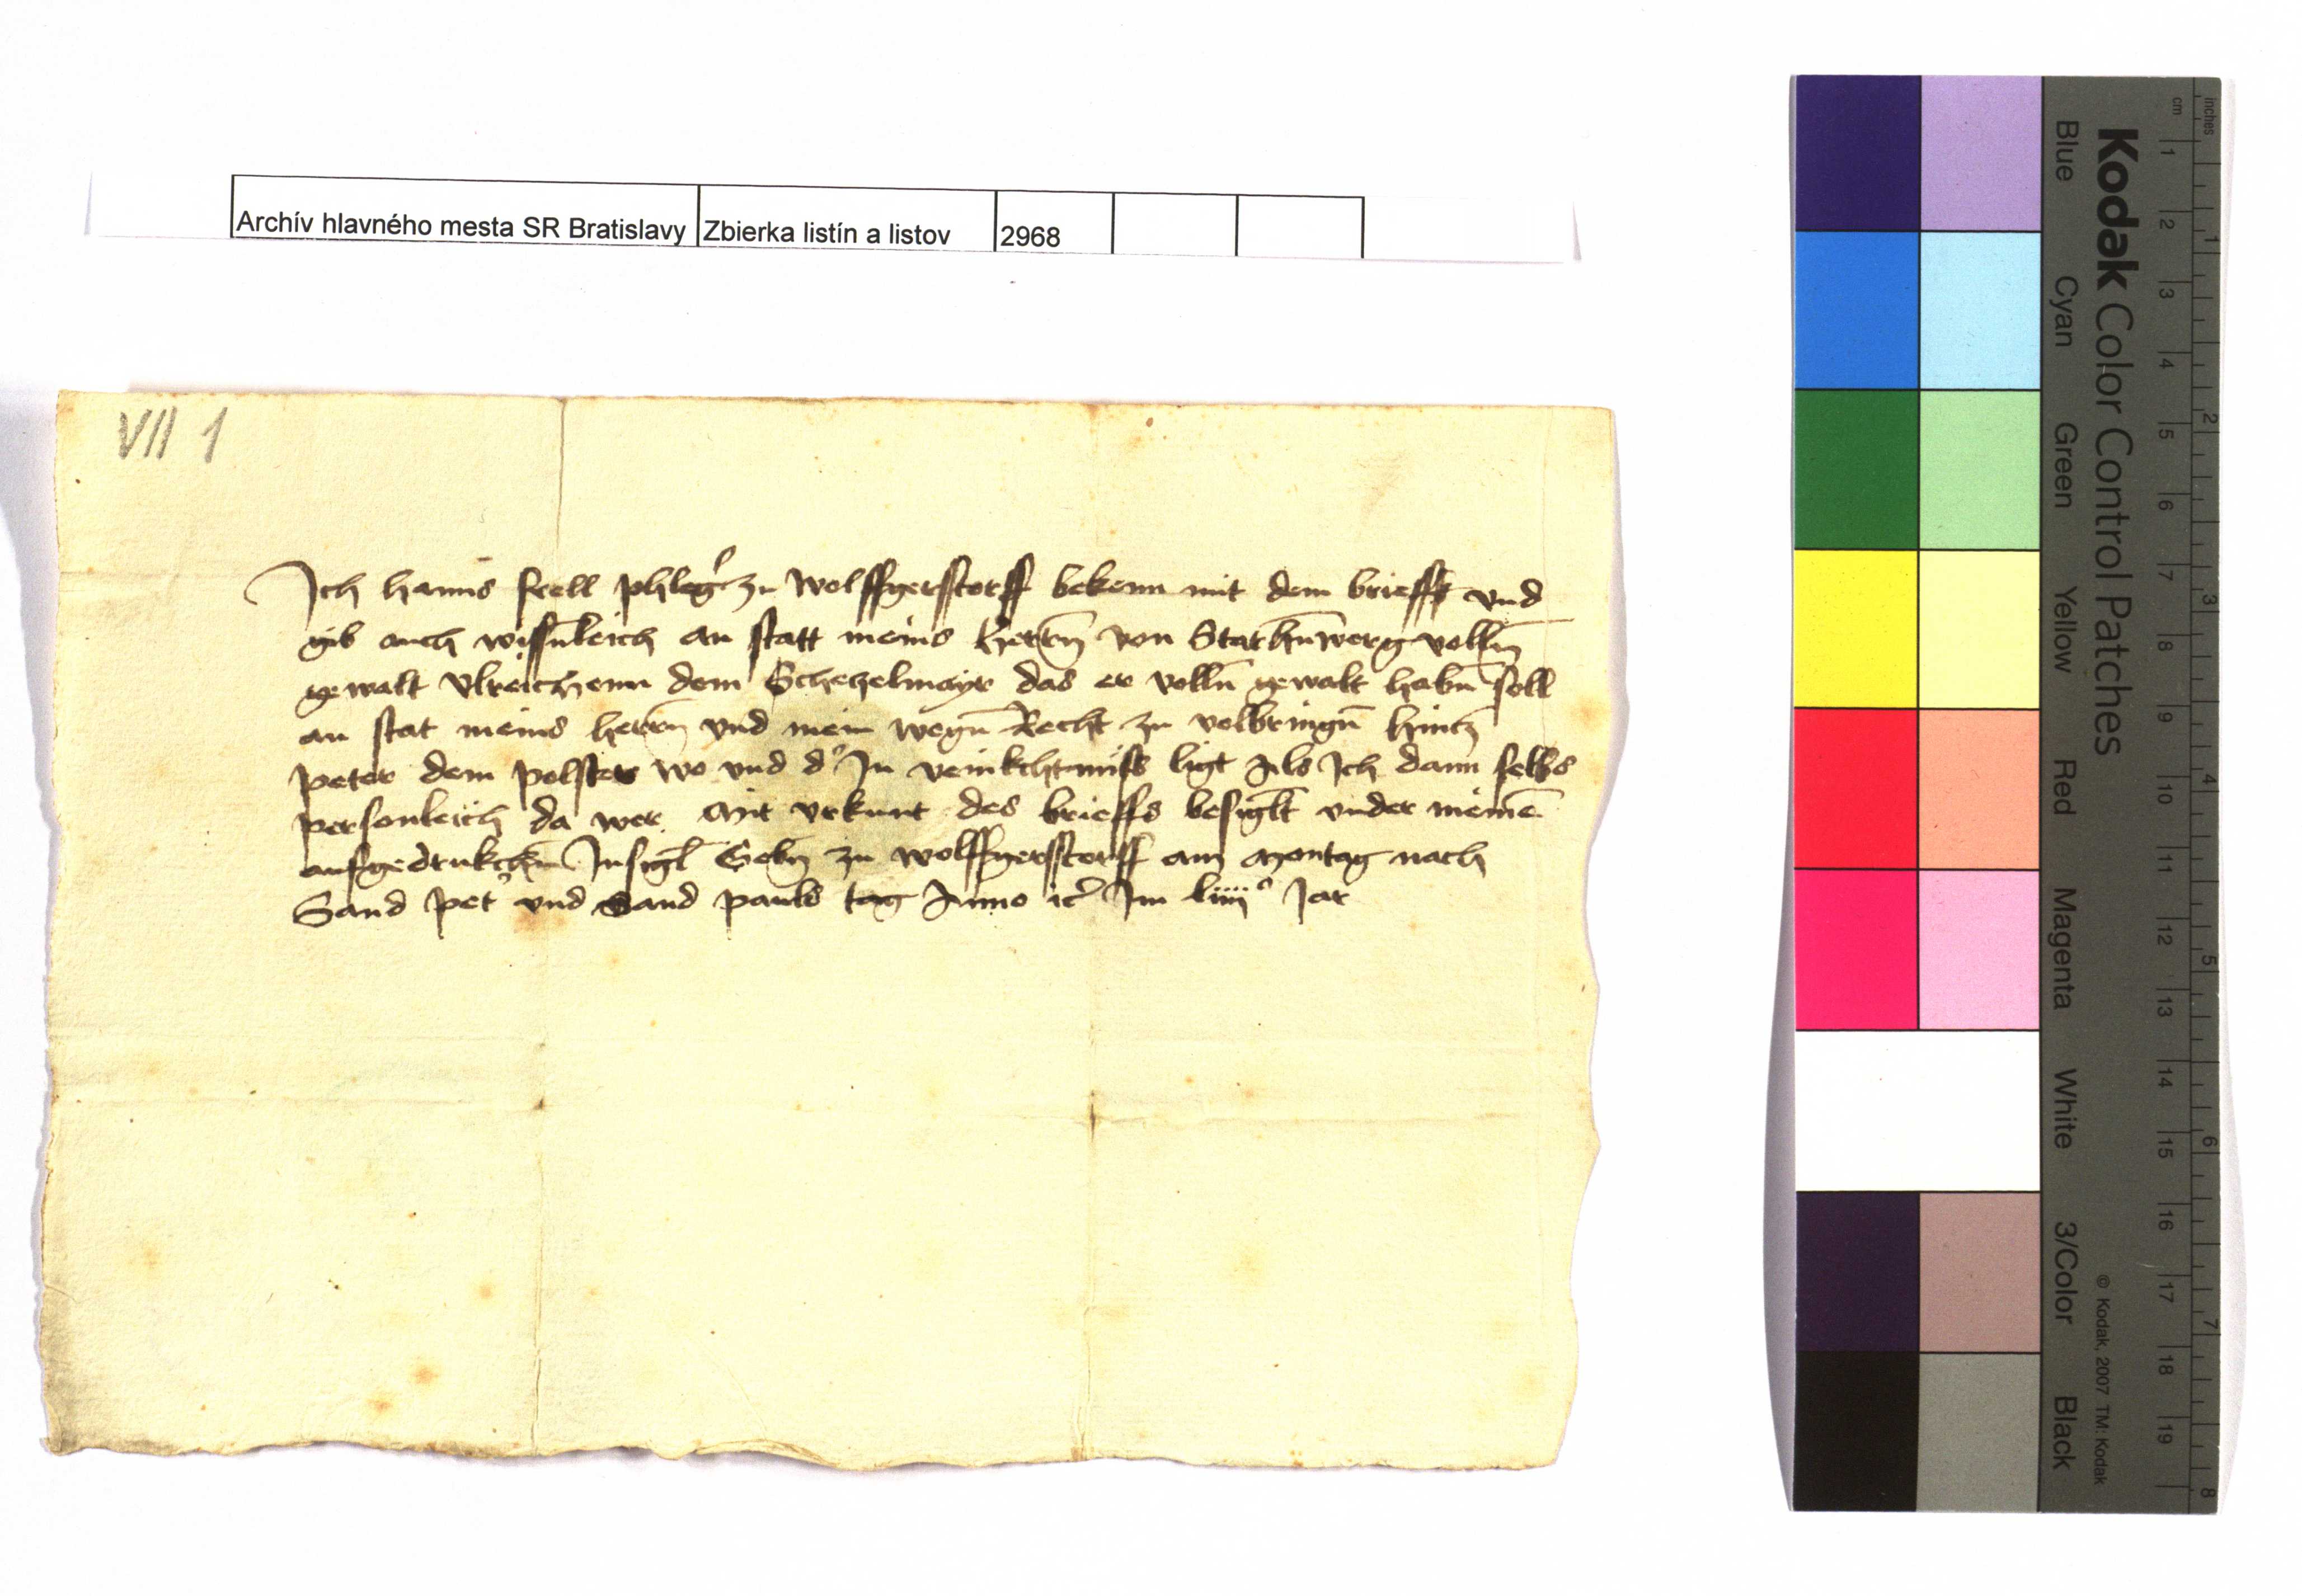 Archív hlavného mesta SR Bratislavy Zbierka listín a listov 2968
VII 1
Ich hanns frell phleg̉ zu Wolffgersstorff bekenn mit dem brieff vnd
gib auch wissn̄leich an statt meins herrn̄ von Starhn̄werg volln̄
gewalt Vlreichenn dem Schezelmayr das er volln̄ gewalt habn̄ soll
an stat meins herrn̄ vnd mein wegn̄ Recht zu volbringn̄ hintz
peter dem polster wo vnd d̉ In venkchtnüss ligt Als Ich dann selbs
personleich da wer Mit vrkunt des brieffs besiglt vnder meinē
aufgedrukchtn̄ Insigl̄ Gebn̄ zu Wolffgersstorff am Montag nach
Sand pet̉ vnd Sand pauls tag Anno ꝛc̉ Im liiiiº Jar
Kodak Color Control Patches
Blue Cyan Green Yellow Red Magenta White 3/Color Black
© Kodak, 2007 TM: Kodak
cm 1 2 3 4 5 6 7 8 9 10 11 12 13 14 15 16 17 18 19
inches 1 2 3 4 5 6 7 8